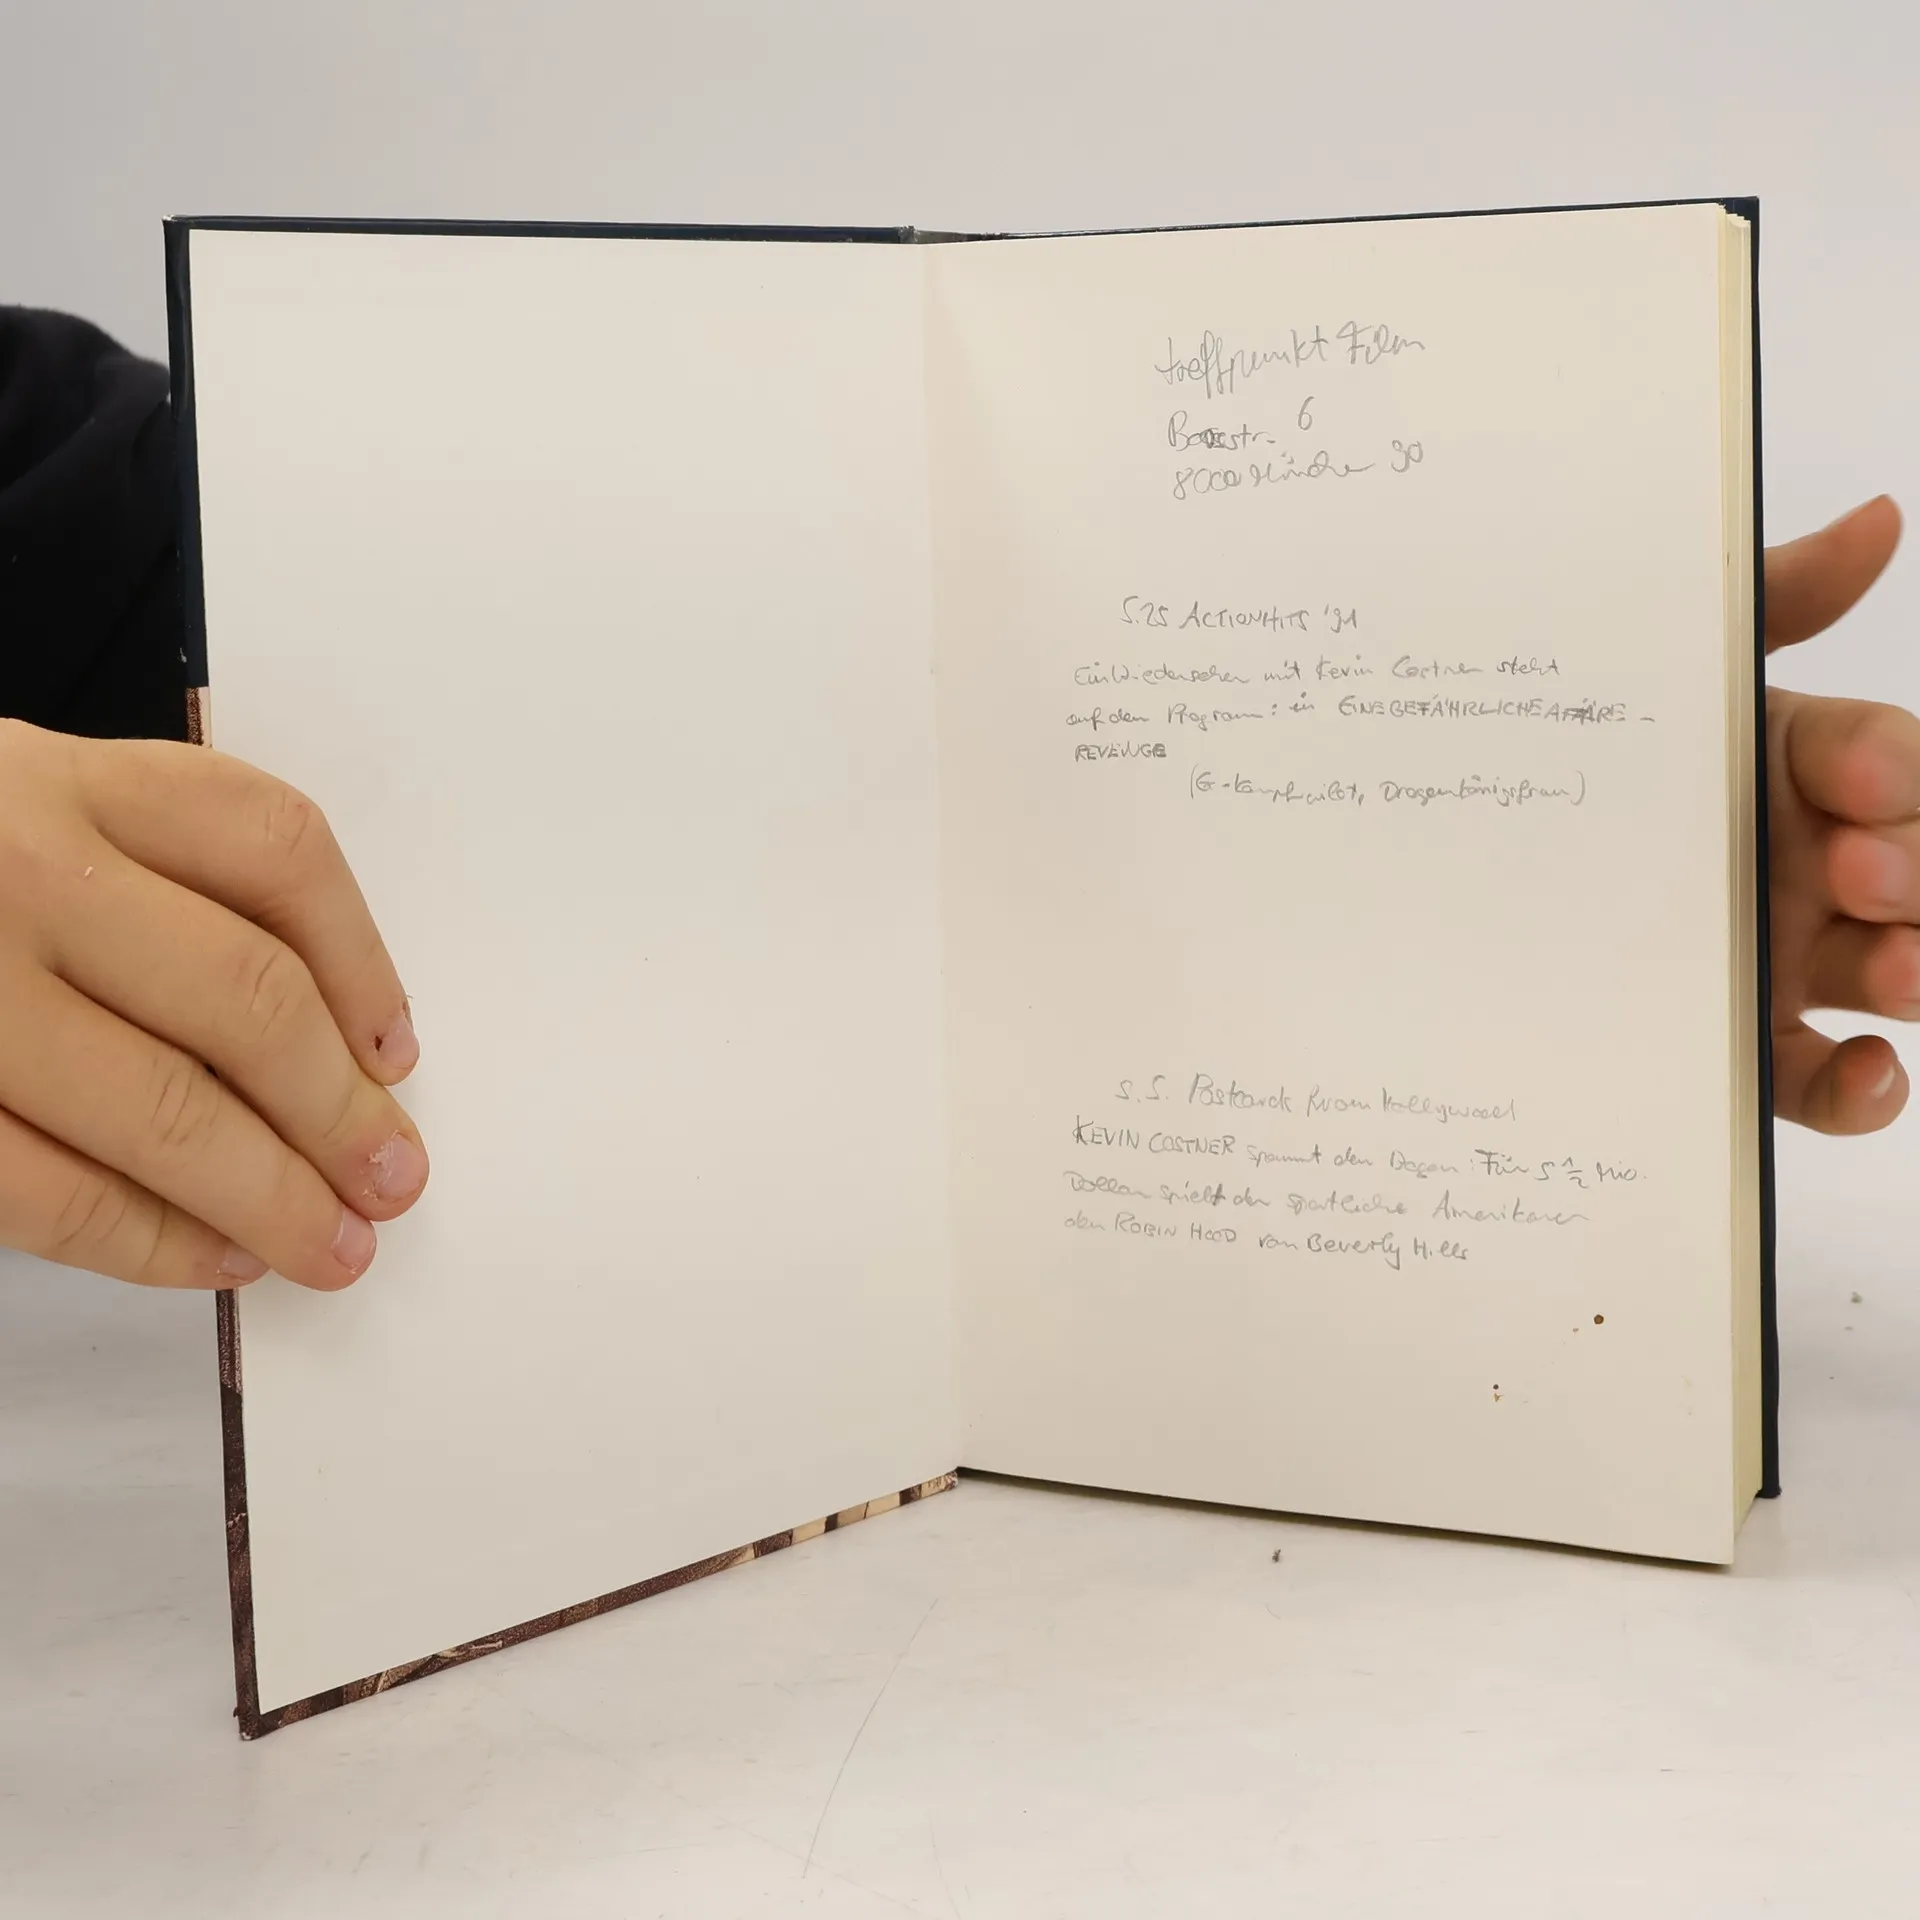 treffpunkt Film
6
8000 München 90
S.25 ACTIONHITS '91
Ein Wiedersehen mit Kevin Costner steht
auf dem Programm: in EINE GEFÄHRLICHE AFFÄRE -
REVENGE
(Ex-Kampfpilot, Drogenkönigsfrau)
S.5. Postcards from Hollywood
KEVIN COSTNER spannt den Degen: Für 5 1/2 Mio.
Dollar spielt der sportliche Amerikaner
den ROBIN HOOD von Beverly Hills